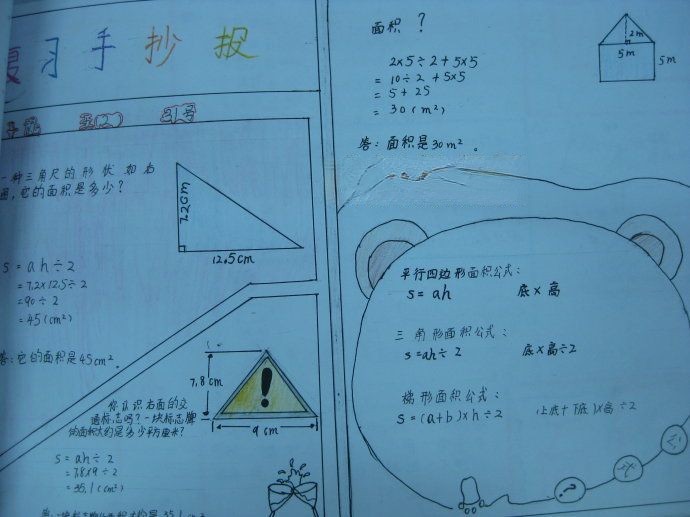 复习手抄报
五(2) 31号
一种三角尺的形状如右
图,它的面积是多少?
7.2cm
12.5cm
S=ah÷2
=7.2×12.5÷2
=90÷2
=45(cm²)
答:它的面积是45cm²。
7.8cm
9cm
你认识右面的交
通标志吗?一块标志牌
的面积大约是多少平方厘米?
S=ah÷2
=7.8×9÷2
=35.1(cm²)
面积?
2m
5m
5m
2×5÷2+5×5
=10÷2+5×5
=5+25
=30(m²)
答:面积是30m²。
平行四边形面积公式:
S=ah 底×高
三角形面积公式:
S=ah÷2 底×高÷2
梯形面积公式:
S=(a+b)×h÷2 (上底+下底)×高÷2